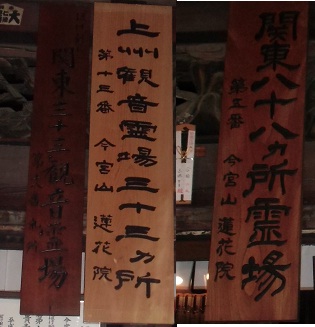 関東八十八ヵ所霊場
第五番 今宮山 蓮花院
上州観音霊場三十三ヵ所
第十三番 今宮山 蓮花院
関東三十三観音霊場